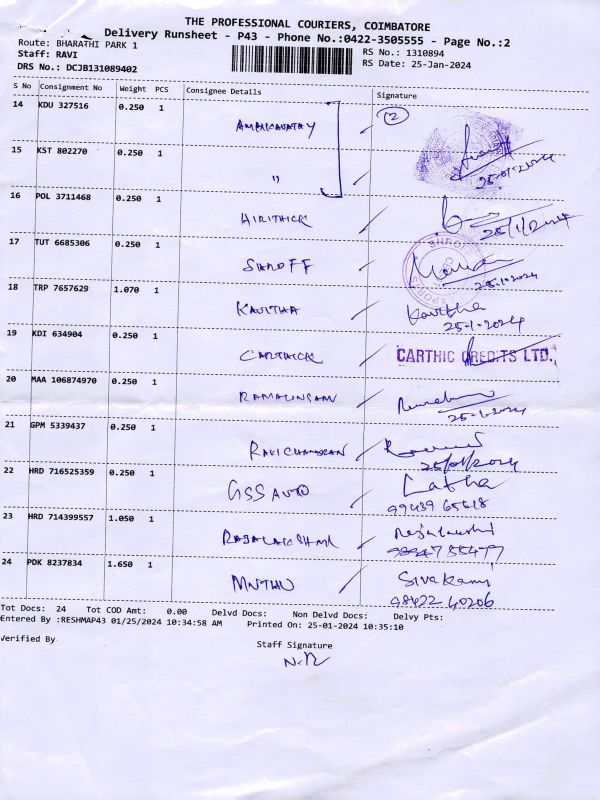 THE PROFESSIONAL COURIERS, COIMBATORE
Delivery Runsheet - P43 - Phone No.:0422-3505555 - Page No.:2
Route: BHARATHI PARK 1
RS No.: 1310894
Staff: RAVI
RS Date: 25-Jan-2024
DRS No.: DCJB131089402
S No Consignment No Weight PCS Consignee Details Signature
14 KDU 327516 0.250 1 2
15 KST 802270 0.250 1 " 25-01-2024
16 POL 3711468 0.250 1 25/1/2024
17 TUT 6685306 0.250 1 SHROFF 25.1.2024
18 TRP 7657629 1.070 1 KAVITHA Kavitha
25-1-2024
19 KDI 634904 0.250 1 CARTHICK CARTHIC CREDITS LTD.
20 MAA 106874970 0.250 1 RAMALINGAM
25-1-2024
21 GPM 5339437 0.250 1 RAVICHANDRAN
25/01/2024
22 HRD 716525359 0.250 1 GSS AUTO Latha
99439 65618
23 HRD 714399557 1.050 1 RAJALAKSHMI Rajalakshmi
24 PDK 8237834 1.650 1 Sivakami
98422 40206
Tot Docs: 24 Tot COD Amt: 0.00 Delvd Docs: Non Delvd Docs: Delvy Pts:
Entered By :RESHMAP43 01/25/2024 10:34:58 AM Printed On: 25-01-2024 10:35:10
Verified By
Staff Signature